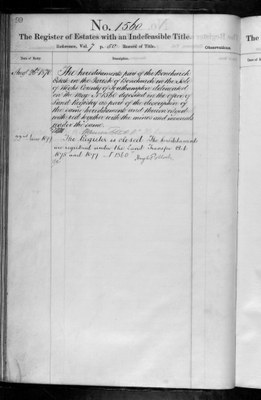 No. 1560
The Register of Estates with an Indefeasible Title.
Vol. 7 p. 50 Record of Title.
Date of Entry Description Observations
Augt 1876 The hereditaments part of the Bonchurch
Estate in the Parish of Bonchurch in the Isle
of Wight County of Southampton delineated
on the map No 1560 deposited in the office of
Land Registry as part of the description of
the same hereditaments and thereon edged
with red together with the mines and minerals
under the same.
June 1899 The Register is closed. The hereditaments
are registered under the Land Transfer Acts
1875 and 1897.
The